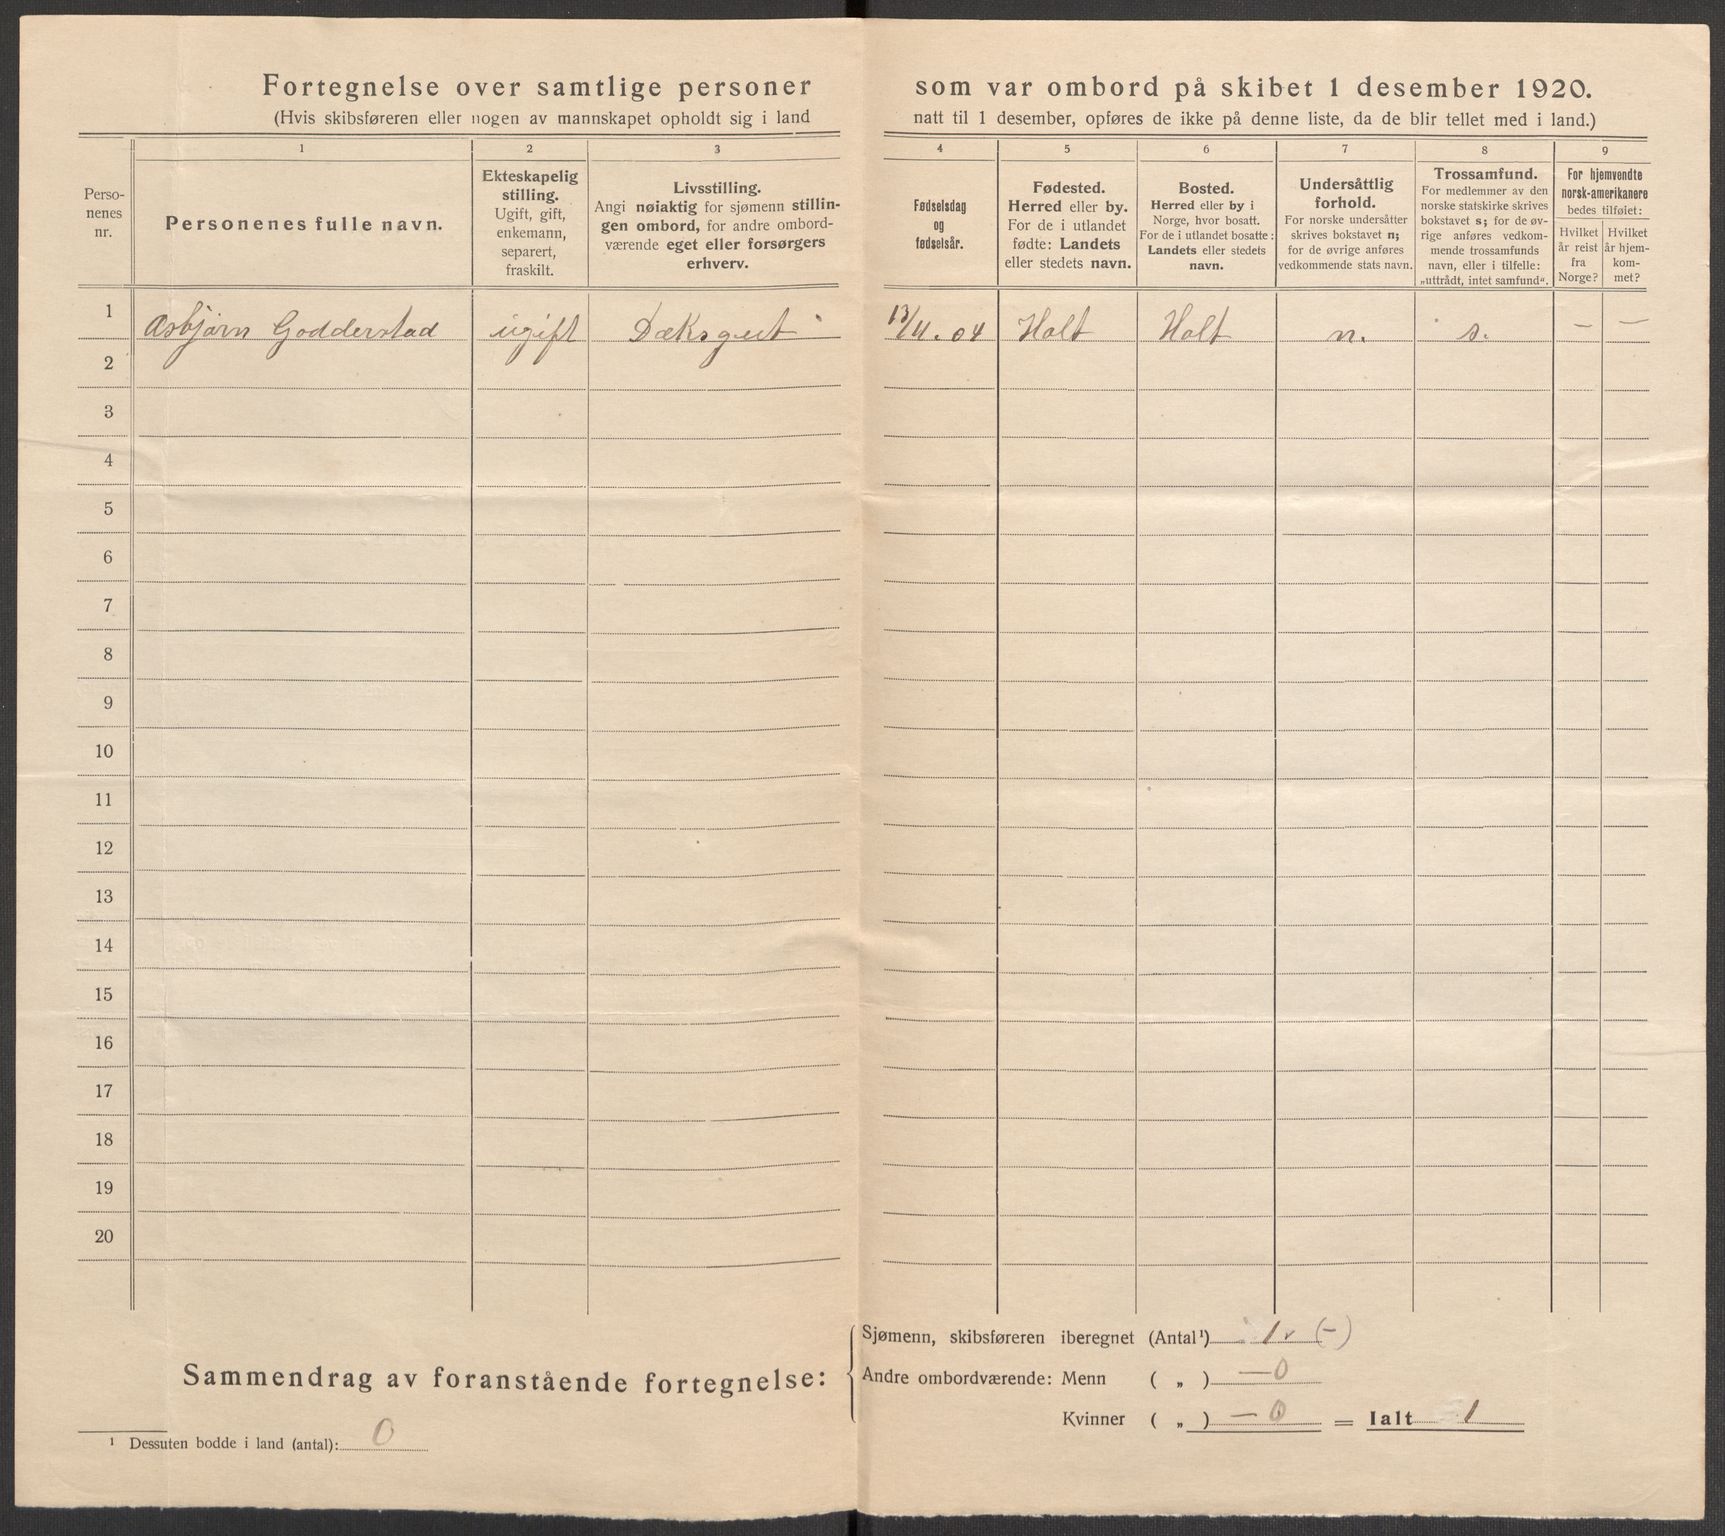 Fortegnelse over samtlige personer som var ombord på skibet 1 desember 1920.
(Hvis skibsføreren eller nogen av mannskapet opholdt sig i land natt til 1 desember, opføres de ikke på denne liste, da de blir tellet med i land.)
1 2 3 4 5 6 7 8 9
Perso-
nenes
nr.
Personenes fulle navn.
Ekteskapelig
stilling.
Ugift, gift,
enkemann,
separert,
fraskilt.
Livsstilling.
Angi nøiaktig for sjømenn stillin-
gen ombord, for andre ombord-
værende eget eller forsørgers
erhverv.
Fødselsdag
og
fødselsår.
Fødested.
Herred eller by.
For de i utlandet
fødte: Landets
eller stedets navn.
Bosted.
Herred eller by i
Norge, hvor bosatt.
For de i utlandet bosatte:
Landets eller stedets
navn.
Undersåttlig
forhold.
For norske undersåtter
skrives bokstavet n;
for de øvrige anføres
vedkommende stats navn.
Trossamfund.
For medlemmer av den
norske statskirke skrives
bokstavet s; for de øv-
rige anføres vedkom-
mende trossamfunds
navn, eller i tilfelle:
„uttrådt, intet samfund“.
For hjemvendte
norsk-amerikanere
bedes tilføiet:
Hvilket
år reist
fra
Norge?
Hvilket
år hjem-
kom-
met?
1 Asbjørn Godderstad ugift Dæksgut 13/11.04 Holt Holt n. s. — —
2
3
4
5
6
7
8
9
10
11
12
13
14
15
16
17
18
19
20
Sammendrag av foranstående fortegnelse:
Sjømenn, skibsføreren iberegnet (Antal¹) 1 (-)
Andre ombordværende: Menn ( „ ) —0
Kvinner ( „ ) —0 = Ialt 1
¹ Dessuten bodde i land (antal): 0